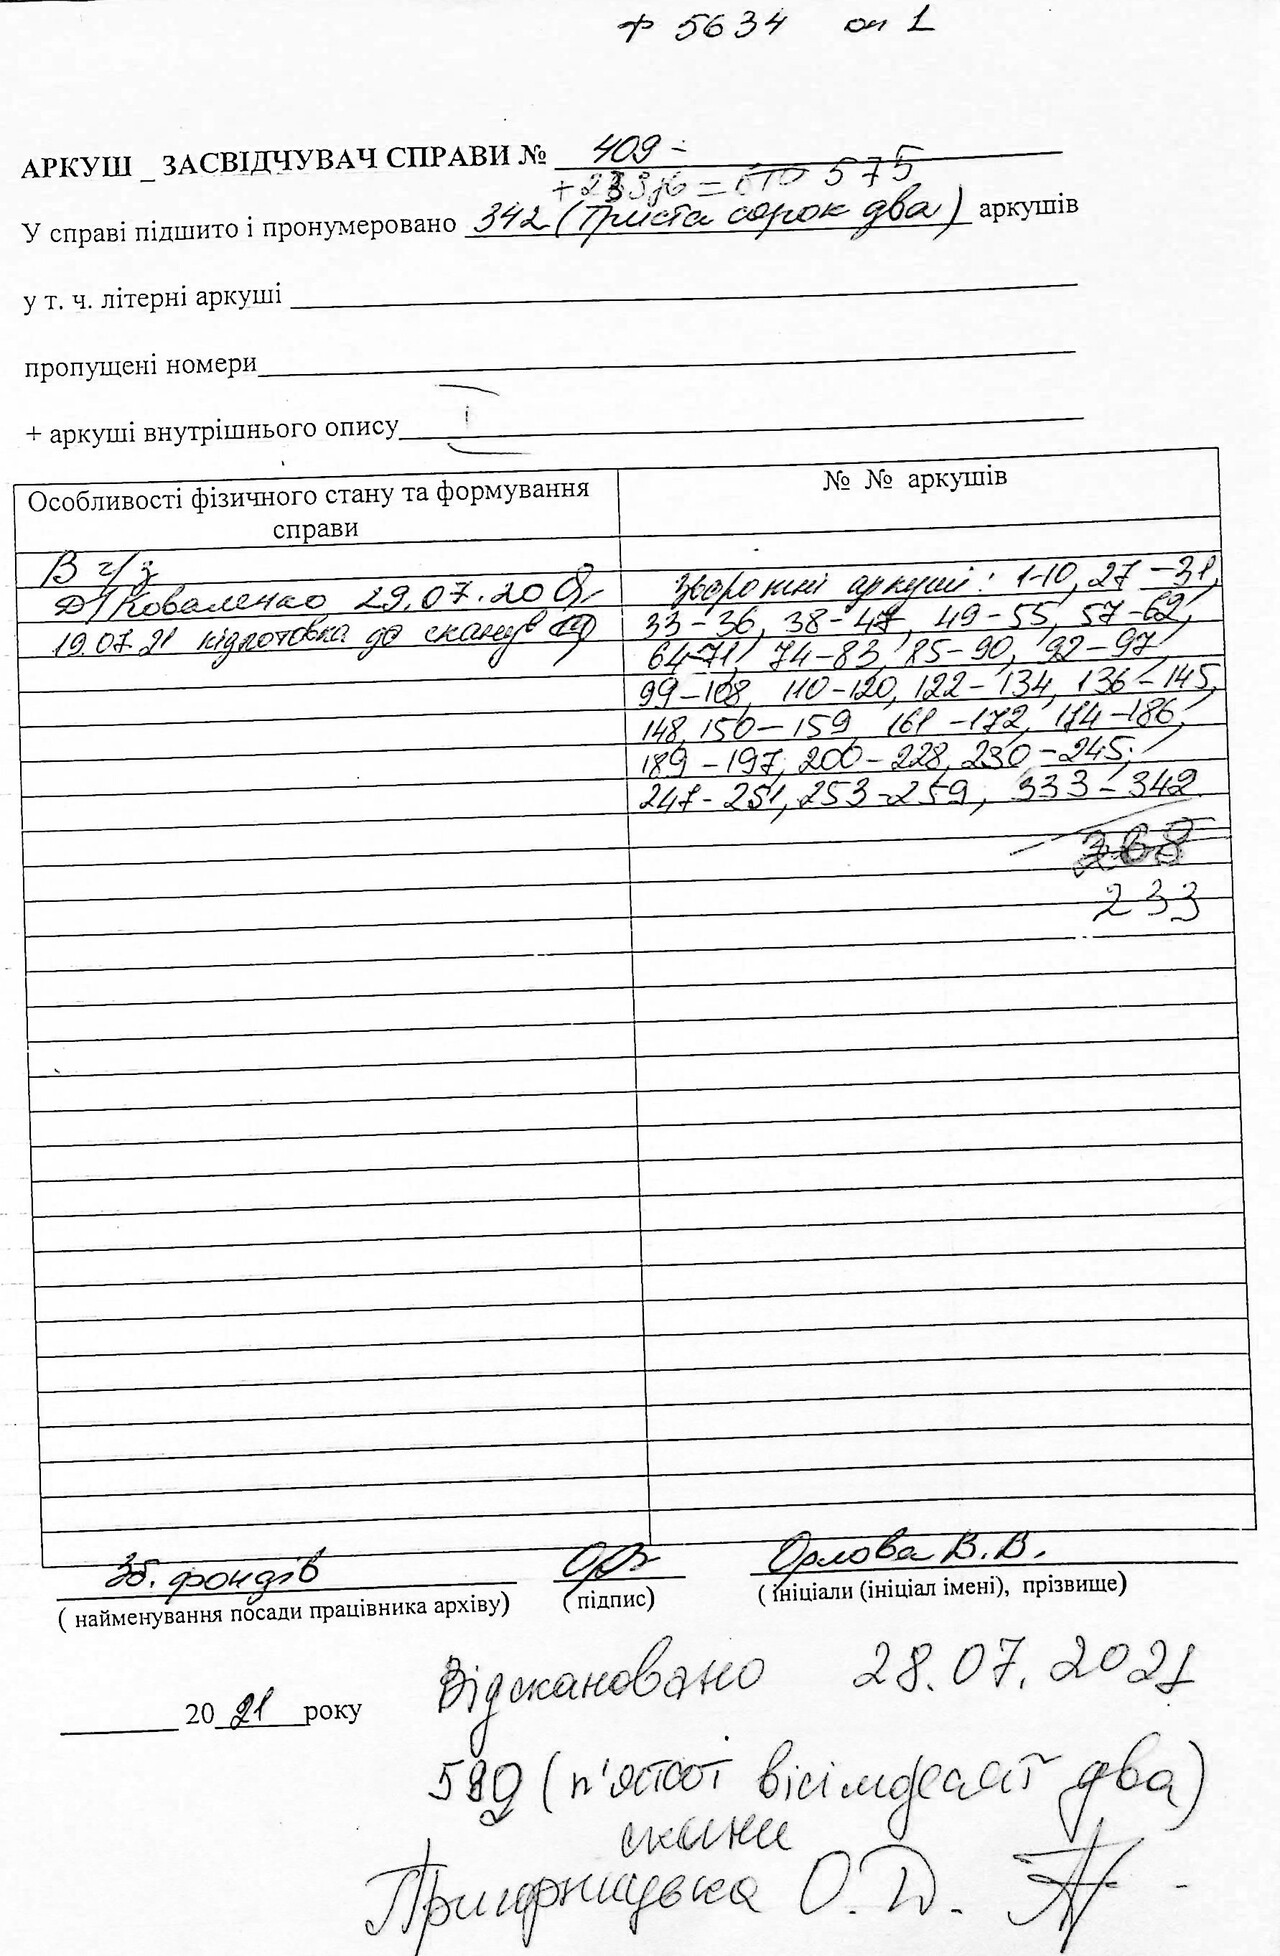 ф 5634 оп 1
АРКУШ _ ЗАСВІДЧУВАЧ СПРАВИ № 409 -
= 575
У справі підшито і пронумеровано 342 (Триста сорок два) аркушів
у т. ч. літерні аркуші
пропущені номери
+ аркуші внутрішнього опису
Особливості фізичного стану та формування справи
№ № аркушів
В ч/з
Коваленко 29.07.20
19.07.21 підготовка до сканув
Зворотні аркуші: 1-10, 27-31,
33-36, 38-47, 49-55, 57-62,
64-71, 74-83, 85-90, 92-97
99-108, 110-120, 122-134, 136-145,
148, 150-159 161-172, 174-186,
189-197, 200-228, 230-245,
247-251, 253-259, 333-342
233
Зб. фондів Орлова В.В.
( найменування посади працівника архіву) ( підпис) ( ініціали (ініціал імені), прізвище)
Відскановано 28.07.2021
20 21 року
582 (п'ятсот вісімдесят два)
скани
О.Д.